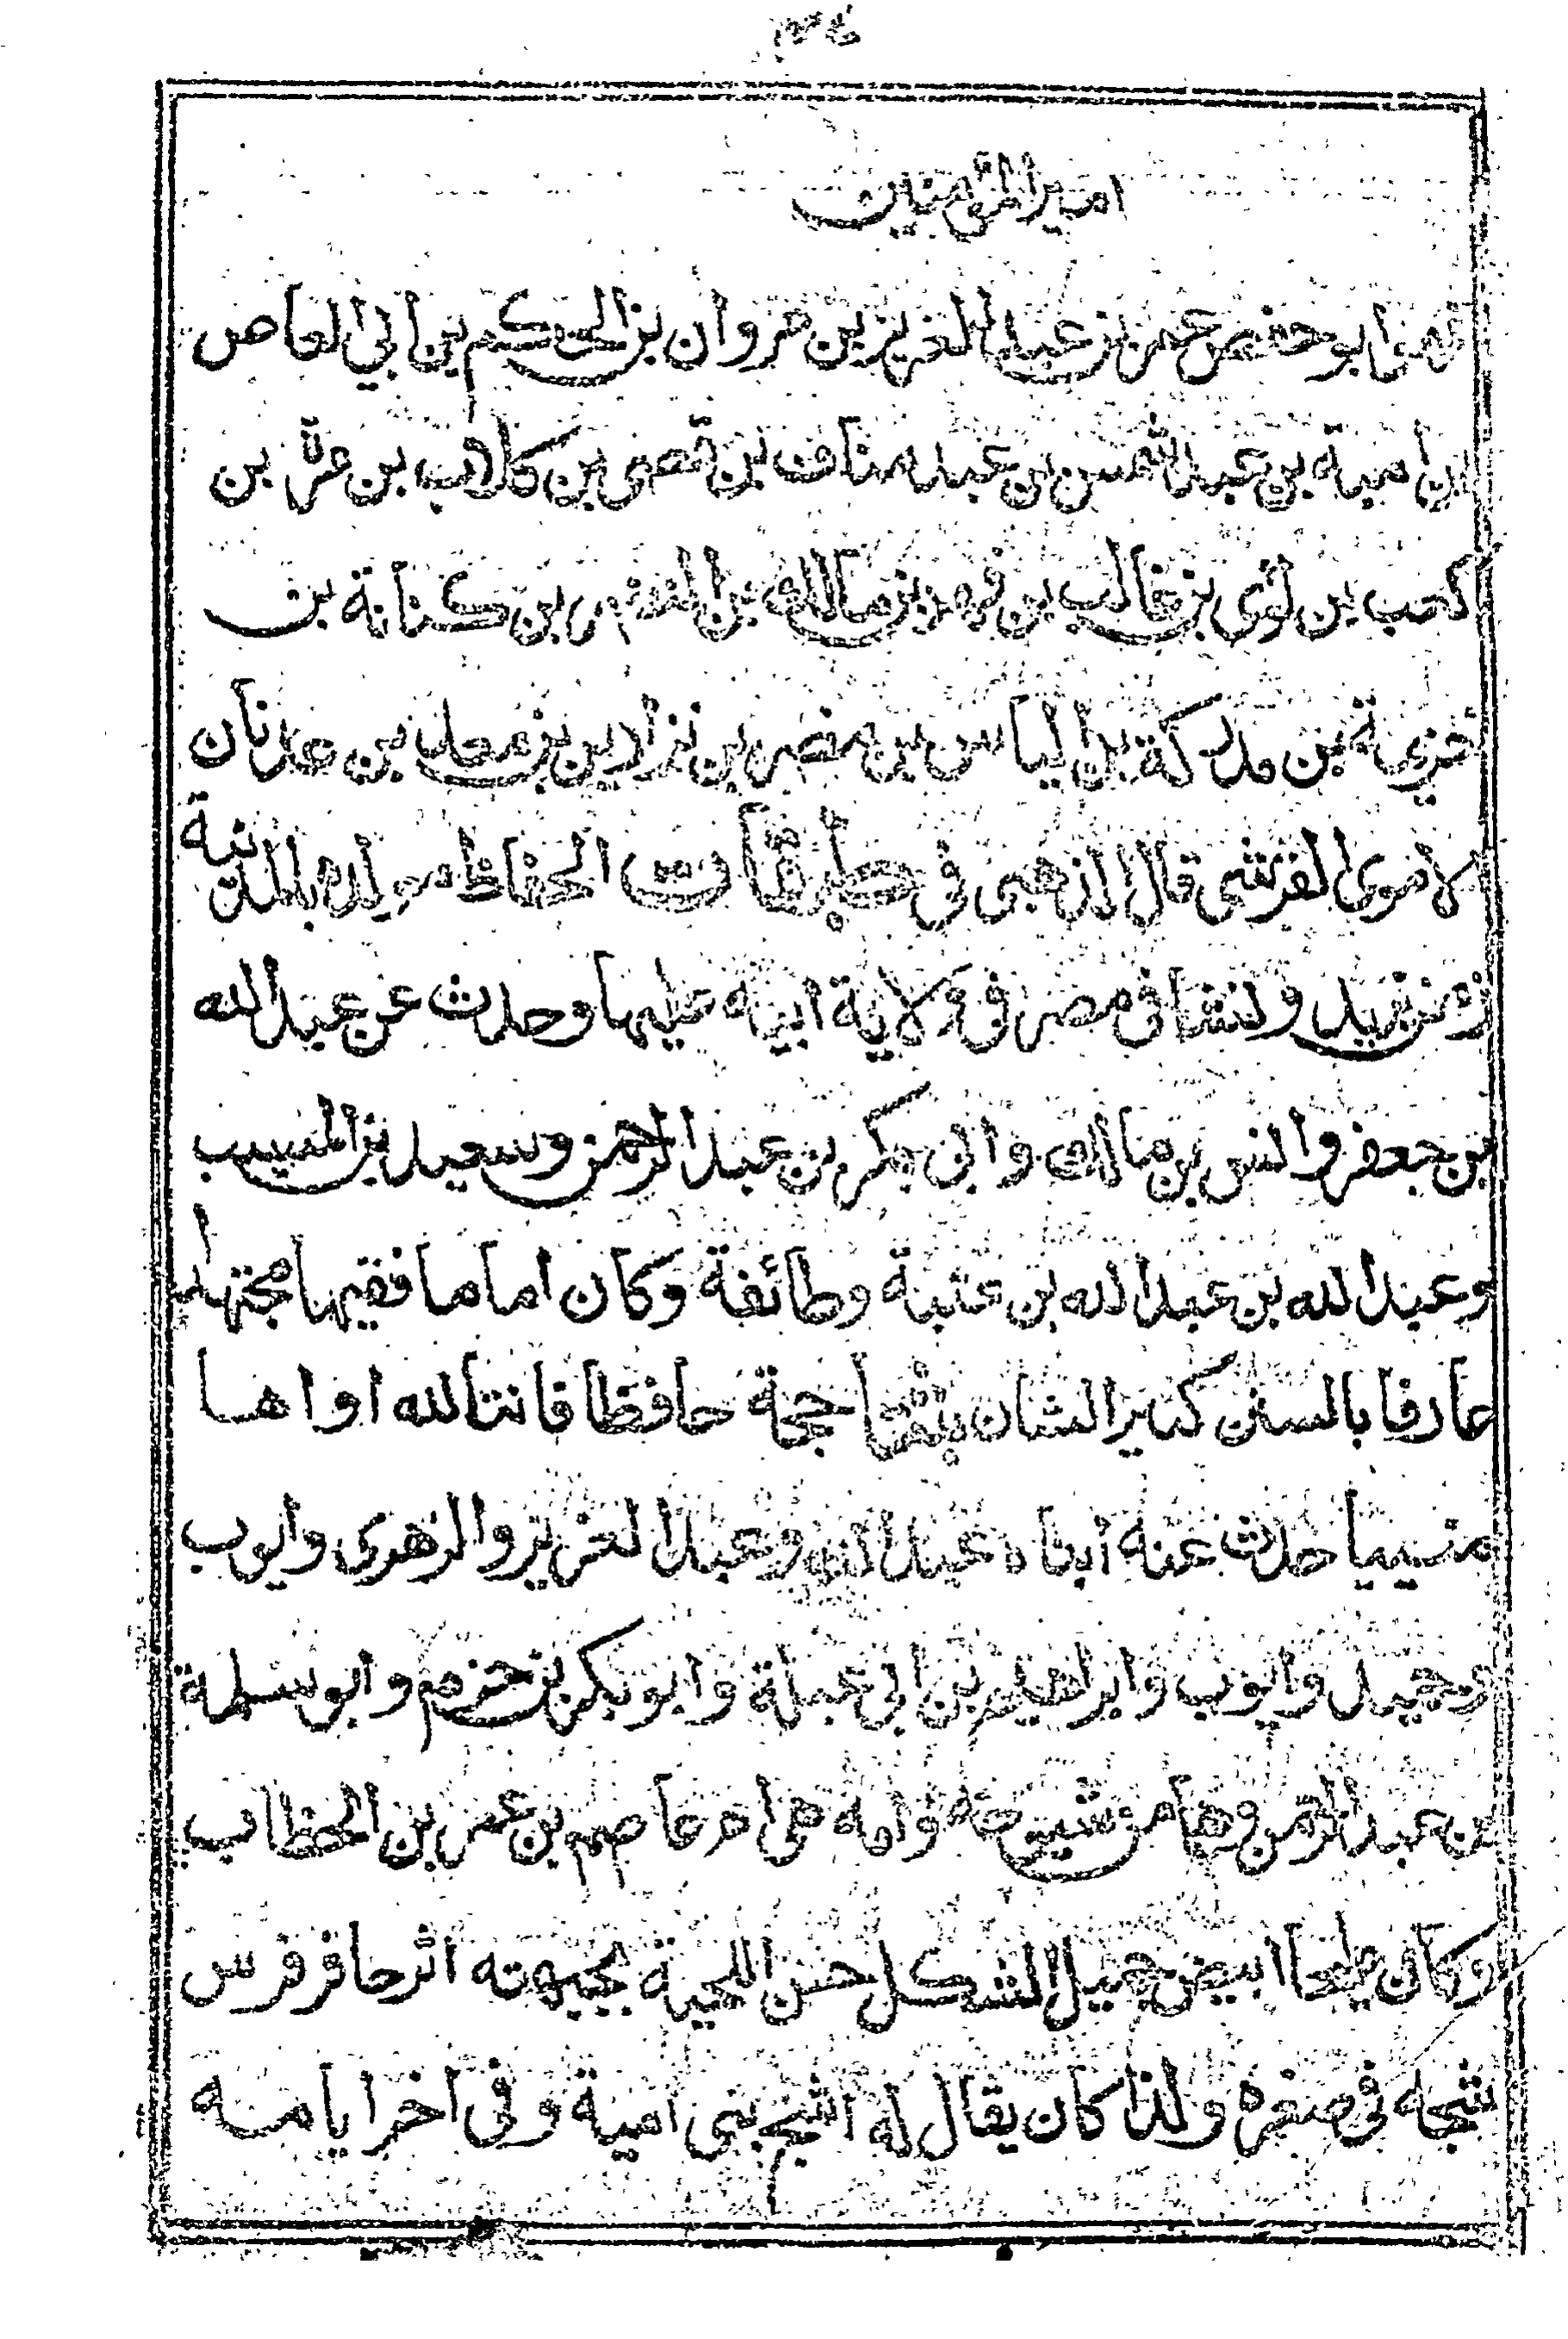 امير المؤمنين
فهو ابو حفص عمر بن عبد العزيز بن مروان بن الحكم بن ابي العاص
بن امية بن عبد الشمس بن عبد مناف بن قصى بن كلاب بن مرّة بن
كعب بن لؤى بن غالب بن فهر بن مالك بن النضر بن كنانة بن
خزيمة بن مدركة بن الياس بن مضر بن نزار بن معد بن عدنان
لاموى القرشى قال الذهبى فى طبقات الحفاظ مولده بالمدينة
زمن يزيد ونشا فى مصر فى ولاية ابيه عليها وحدث عن عبد الله
بن جعفر وانس بن مالك وابى بكر بن عبد الرحمن وسعيد بن المسيب
وعبد الله بن عبد الله بن عتبة وطائفة وكان اماما فقيها مجتهدا
عارفا بالسنن كبير الشان ثبتا حجة حافظا قانتا لله اواها
منيبا حدث عنه ابناه عبد الله وعبد العزيز والزهرى وايوب
وحميد وايوب وابراهيم بن ابى عبلة وابو بكر بن حزم وابو سلمة
بن عبد الرحمن وهما من شيوخه وامه هى ام عاصم بن عمر بن الخطاب
وكان ابيض جميل الشكل حسن اللحية بجبهته اثر حافر فرس
شجه فى صغره ولذا كان يقال له اشج بنى امية وفى اخر ايامه